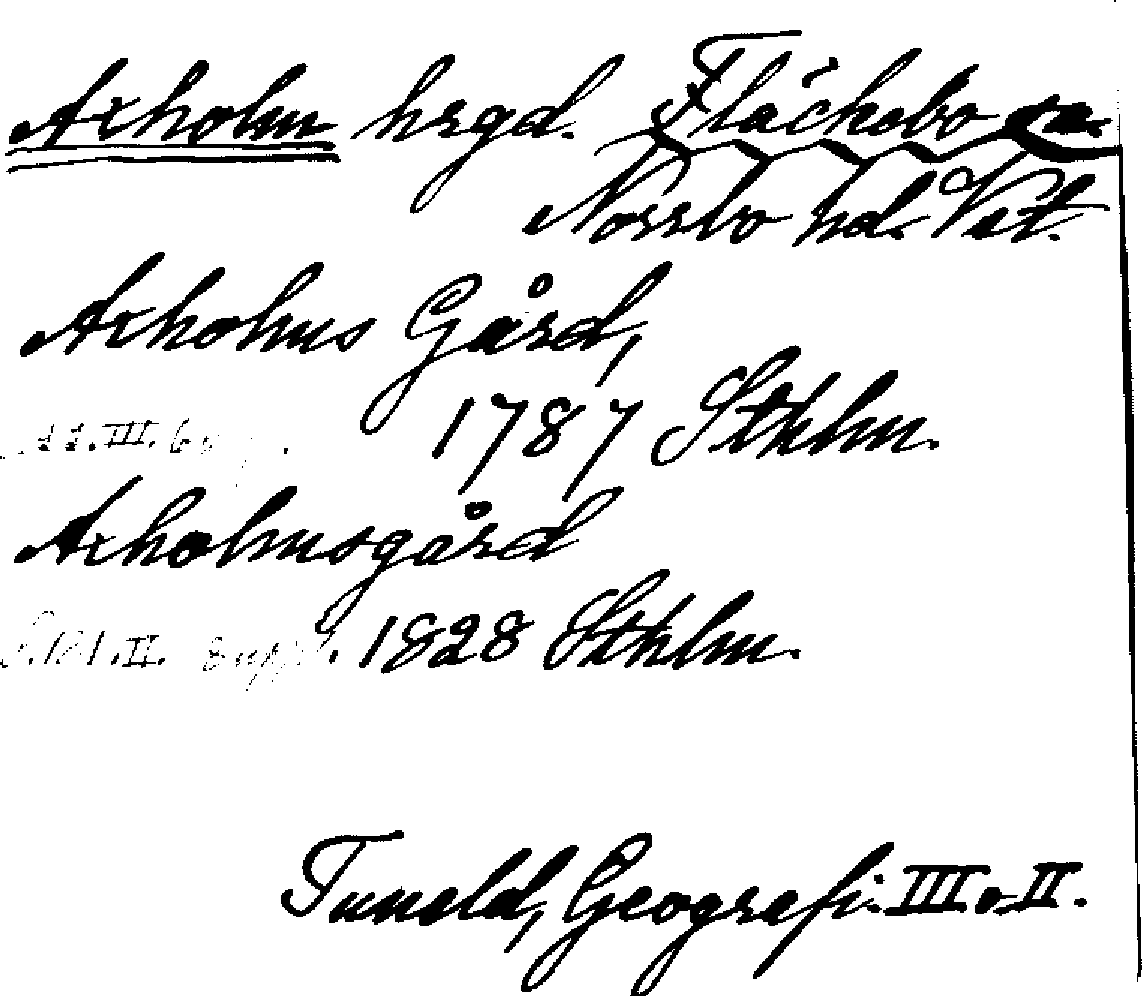 Axholm hrgd. Fläckebo sn.
Norrbo hd. Vst.
Axholms Gård,
1787 Sthlm.
Axholmsgård
II. Suppl. 1828 Sthlm.
Tuneld, Geografi. III o. II.